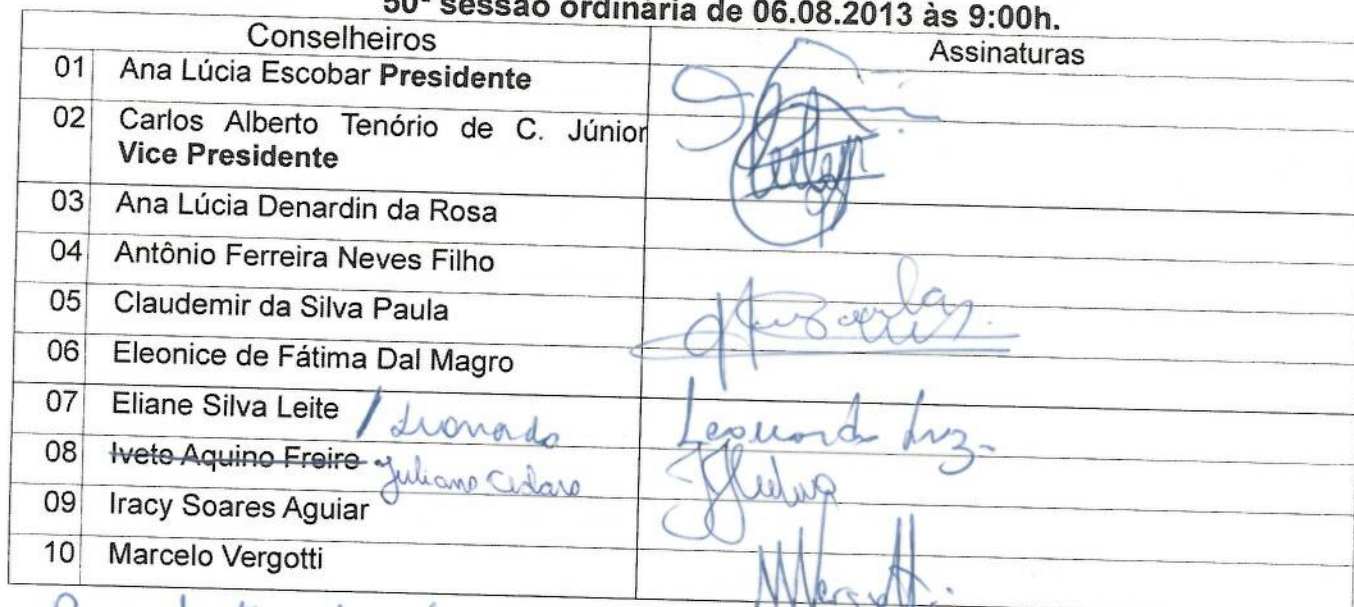 50ª sessão ordinária de 06.08.2013 às 9:00h.
Conselheiros Assinaturas
01 Ana Lúcia Escobar Presidente
02 Carlos Alberto Tenório de C. Júnior
Vice Presidente
03 Ana Lúcia Denardin da Rosa
04 Antônio Ferreira Neves Filho
05 Claudemir da Silva Paula
06 Eleonice de Fátima Dal Magro
07 Eliane Silva Leite / Leonardo Leonardo Luz
08 Ivete Aquino Freire Juliano Cedaro
09 Iracy Soares Aguiar
10 Marcelo Vergotti